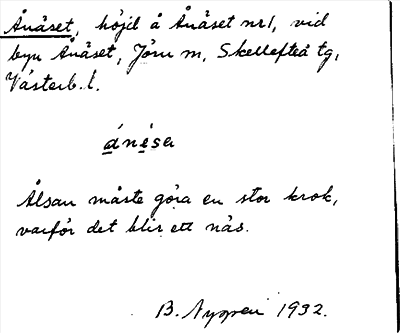 Ånäset, höjd å Ånäset nr 1, vid
byn Ånäset, Jörn sn, Skellefteå tg,
Västerb. l.
ánẹsa
Älvan måste göra en stor krok,
varför det blir ett näs.
B. Nygren 1932.